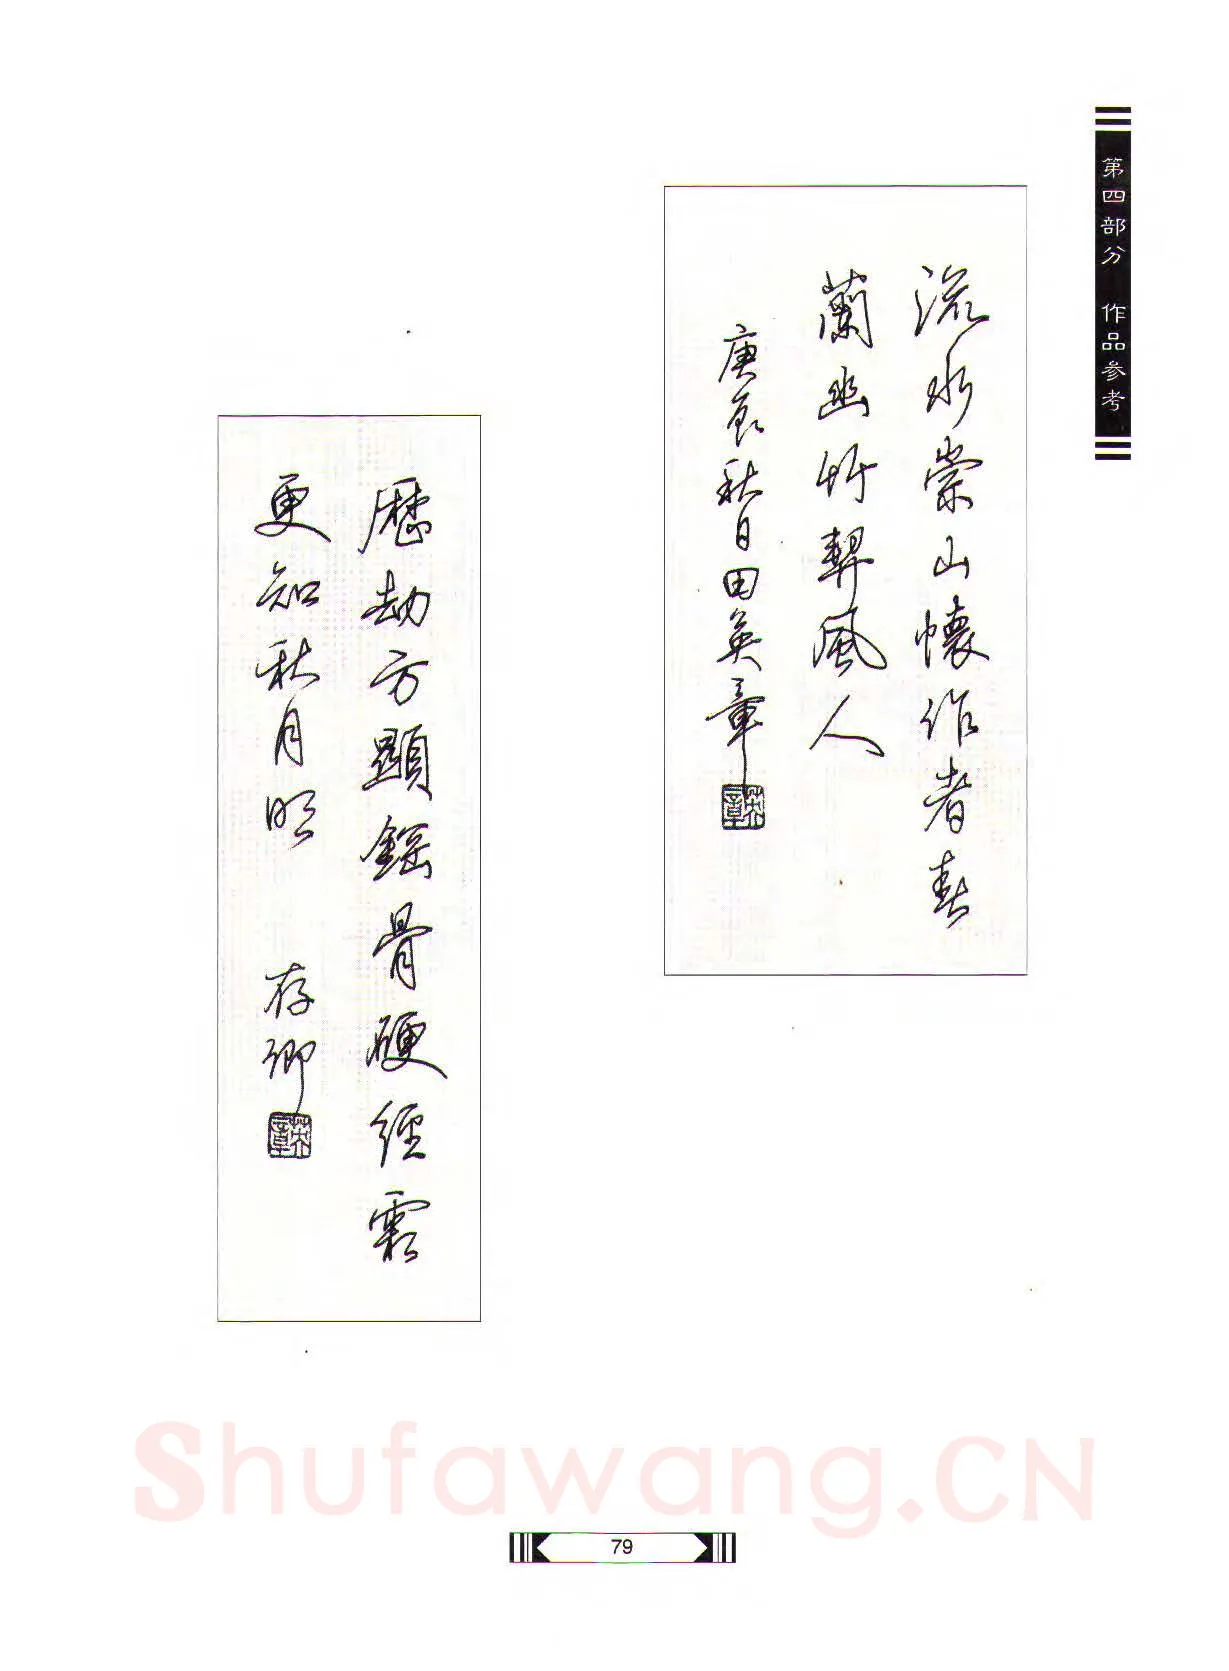 第四部分 作品参考
流水崇山懷作者春
蘭幽竹契風人
庚辰秋日田英章
英章
歷劫方顯錚骨硬經霜
更知秋月明 存卿
英章
Shufawang.CN
79